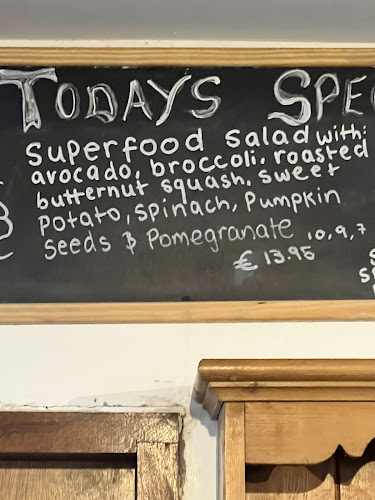 TODAYS SPE
Superfood Salad with:
avocado, broccoli, roasted
butternut squash, sweet
Potato, Spinach, Pumpkin
Seeds & Pomegranate 10,9,7
€ 13.95